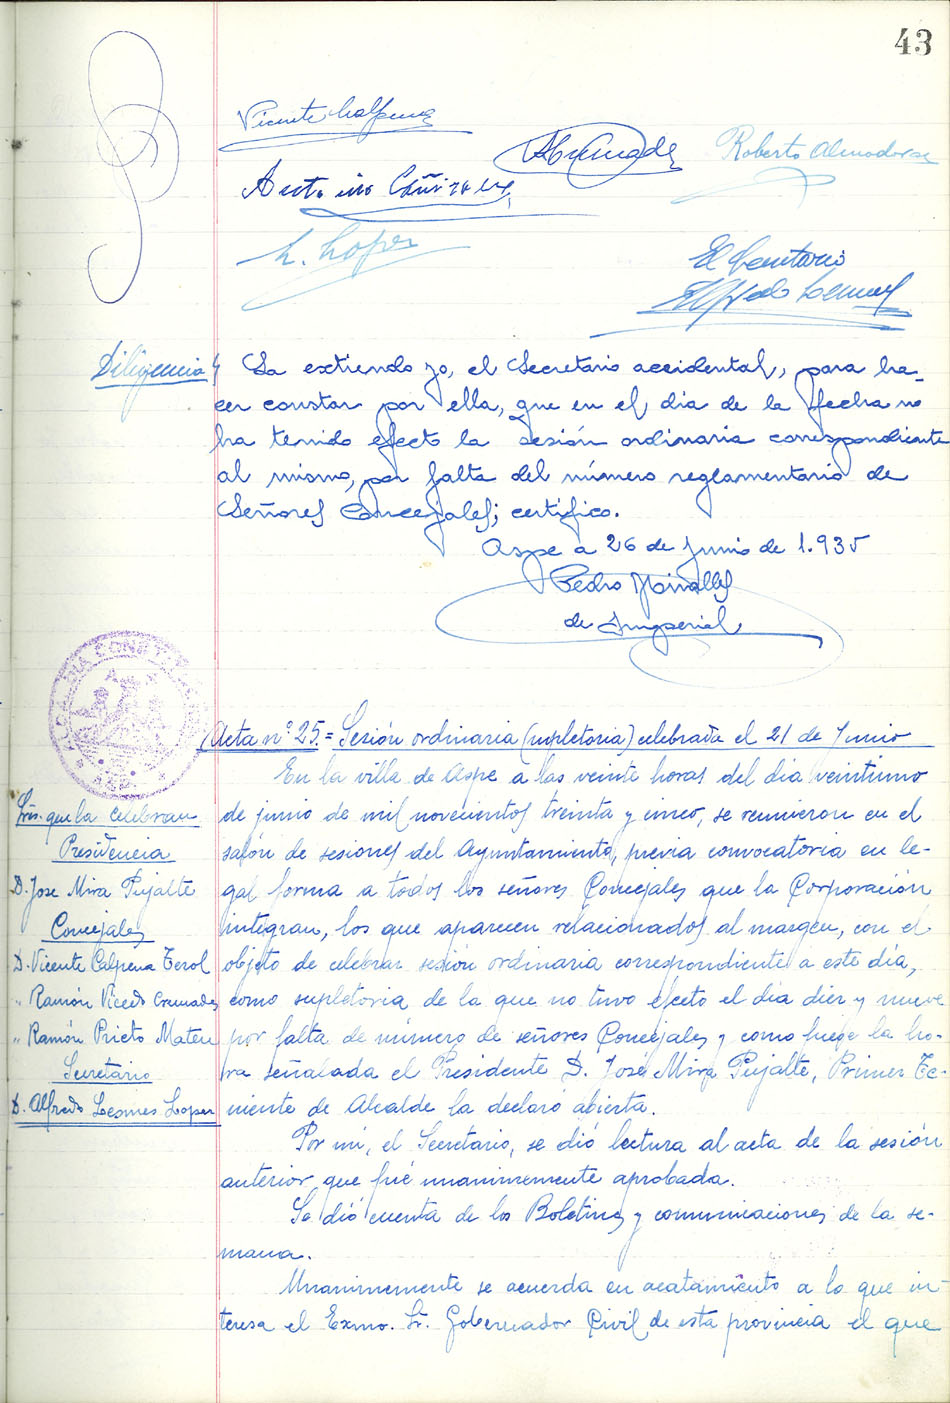 43
Vicente Calpena
Roberto Almodovar
Antonio Cañizares
L. Lopez
El Secretario
Alfredo Lesmes
Diligencia La extiendo yo, el Secretario accidental, para ha-
cer constar por ella, que en el día de la fecha no
ha tenido efecto la sesión ordinaria correspondiente
al mismo, por falta del número reglamentario de
Señores Concejales; certifico.
Aspe a 26 de Junio de 1.935
Pedro Miralles
de Imperial
ALCALDIA CONSTIT
ASPE
Acta nº 25.= Sesión ordinaria (supletoria) celebrada el 21 de Junio
En la villa de Aspe a las veinte horas del día veintiuno
de junio de mil novecientos treinta y cinco, se reunieron en el
salón de sesiones del Ayuntamiento, previa convocatoria en le-
gal forma a todos los señores Concejales que la Corporación
integran, los que aparecen relacionados al margen, con el
objeto de celebrar sesión ordinaria correspondiente a este día,
como supletoria de la que no tuvo efecto el día diez y nueve
por falta de número de señores Concejales y como fuese la ho-
ra señalada el Presidente D. José Mira Pujalte, Primer Te-
niente de Alcalde la declaró abierta.
Por mí, el Secretario, se dió lectura al acta de la sesión
anterior que fué unanimemente aprobada.
Se dió cuenta de los Boletines y comunicaciones de la se-
mana.
Unanimemente se acuerda en acatamiento a lo que in-
teresa el Exmo. Sr. Gobernador Civil de esta provincia el que
Sres. que la celebran
Presidencia
D. Jose Mira Pujalte
Concejales
D. Vicente Calpena Terol
" Ramón Vicedo Cremades
" Ramón Prieto Mateu
Secretario
D. Alfredo Lesmes Lopez